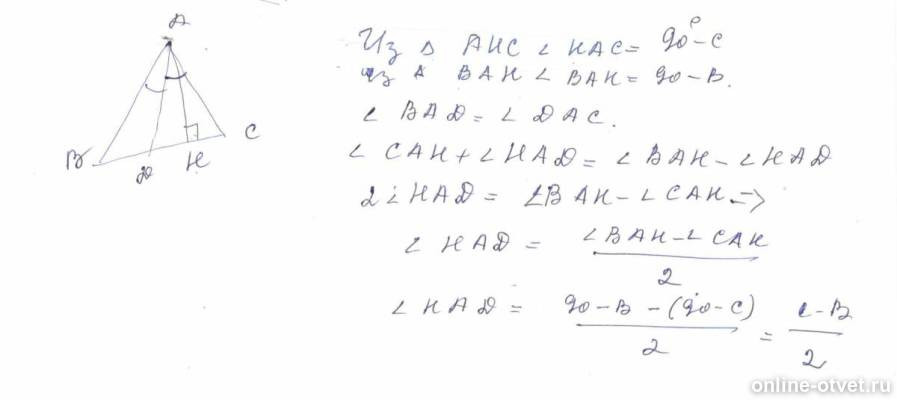 A
B
D
H
C
Из Δ AHC ∠ HAC = 90°-C
из Δ BAH ∠ BAH = 90-B.
∠ BAD = ∠ DAC.
∠ CAH + ∠ HAD = ∠ BAH - ∠ HAD
2∠HAD = ∠BAH - ∠CAH =>
∠ HAD = ∠BAH - ∠CAH / 2
∠ HAD = 90-B-(90-C) / 2 = C-B / 2
online-otvet.ru